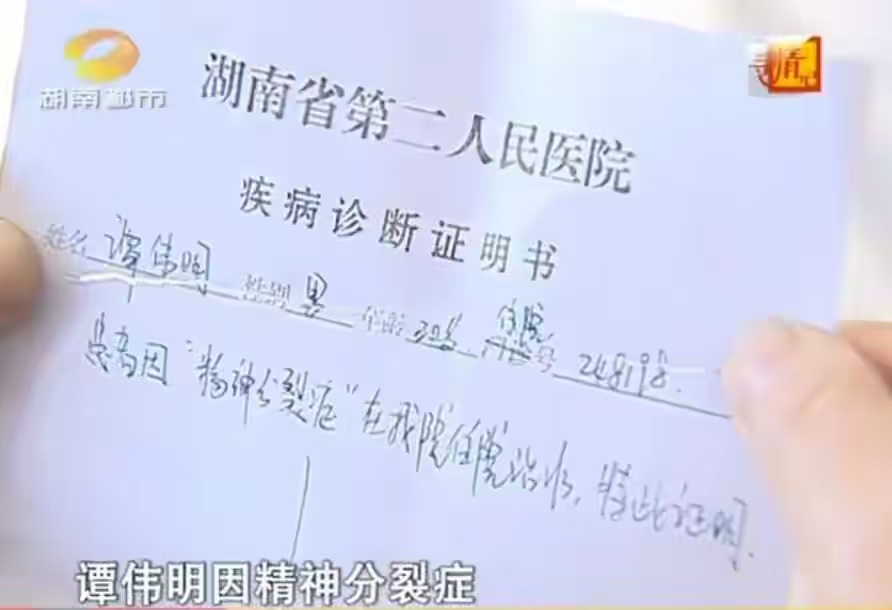 湖南都市
寻情记
湖南省第二人民医院
疾病诊断证明书
姓名 谭伟明 性别 男 年龄 32岁 住院号 248198.
患者因“精神分裂症”在我院住院治疗，特此证明.
谭伟明因精神分裂症